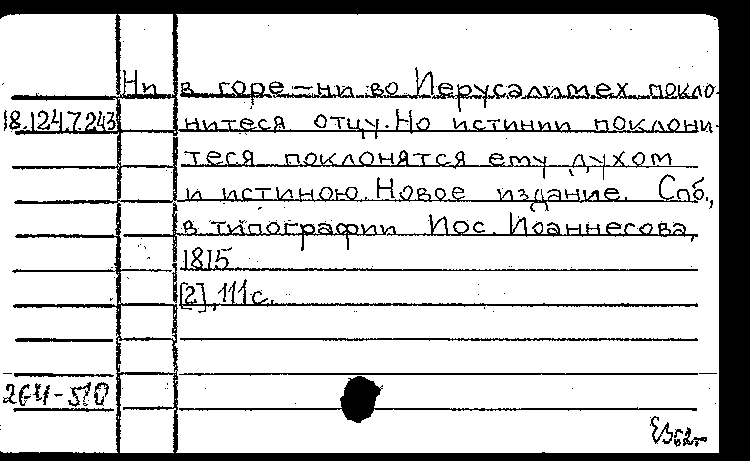 Ни в горе – ни во Иерусалимех покло-
18.124.7.243 нитеся отцу. Но истинии поклони-
теся поклонятся ему духом
и истиною. Новое издание. Спб.,
в типографии Иос. Иоаннесова,
1815
[2], 111 с.
264-510